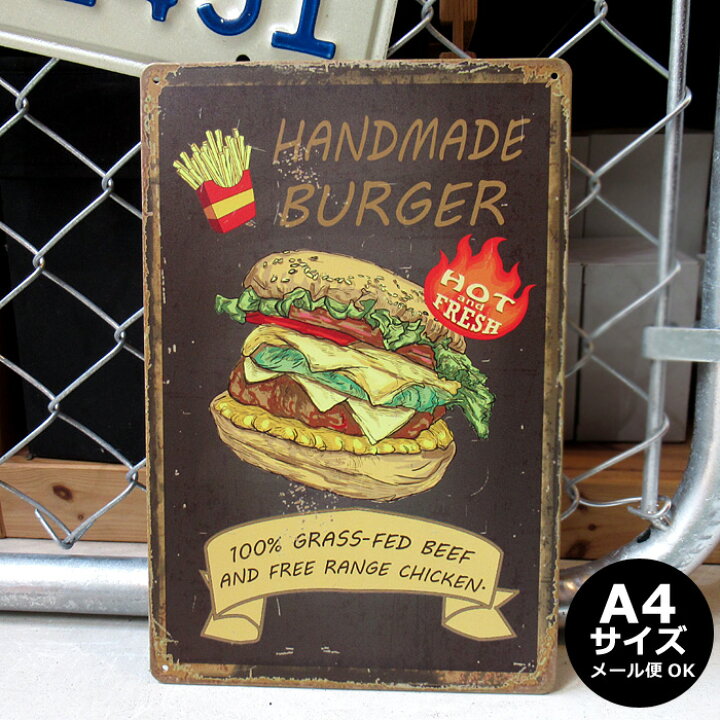 HANDMADE
BURGER
HOT
and
FRESH
100% GRASS-FED BEEF
AND FREE RANGE CHICKEN.
A4
サイズ
メール便 OK